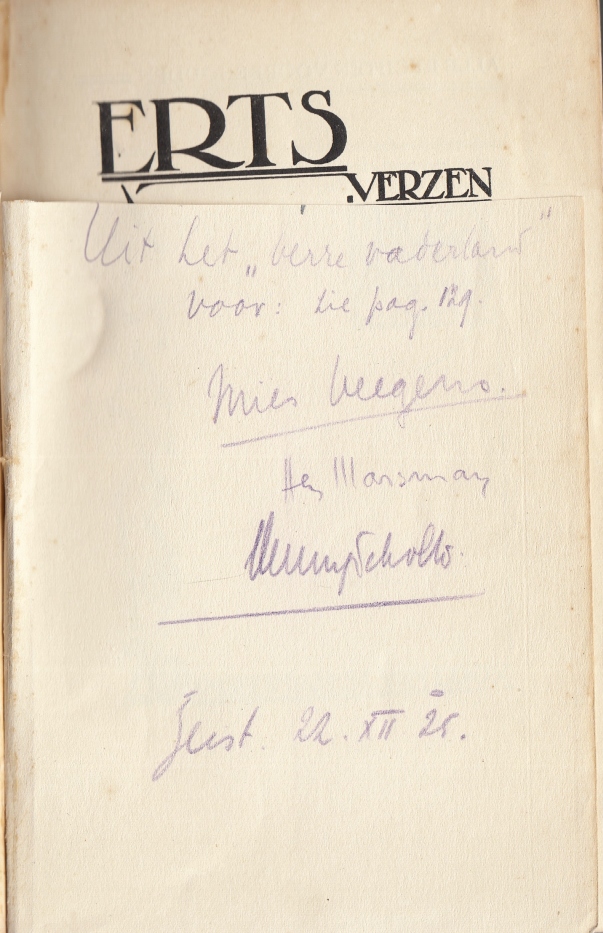 ERTS
VERZEN
Uit het „verre vaderland"
voor: zie pag. 129.
Mies Veegens.
Hen Marsman
Scholte.
Zeist. 22. XII 25.